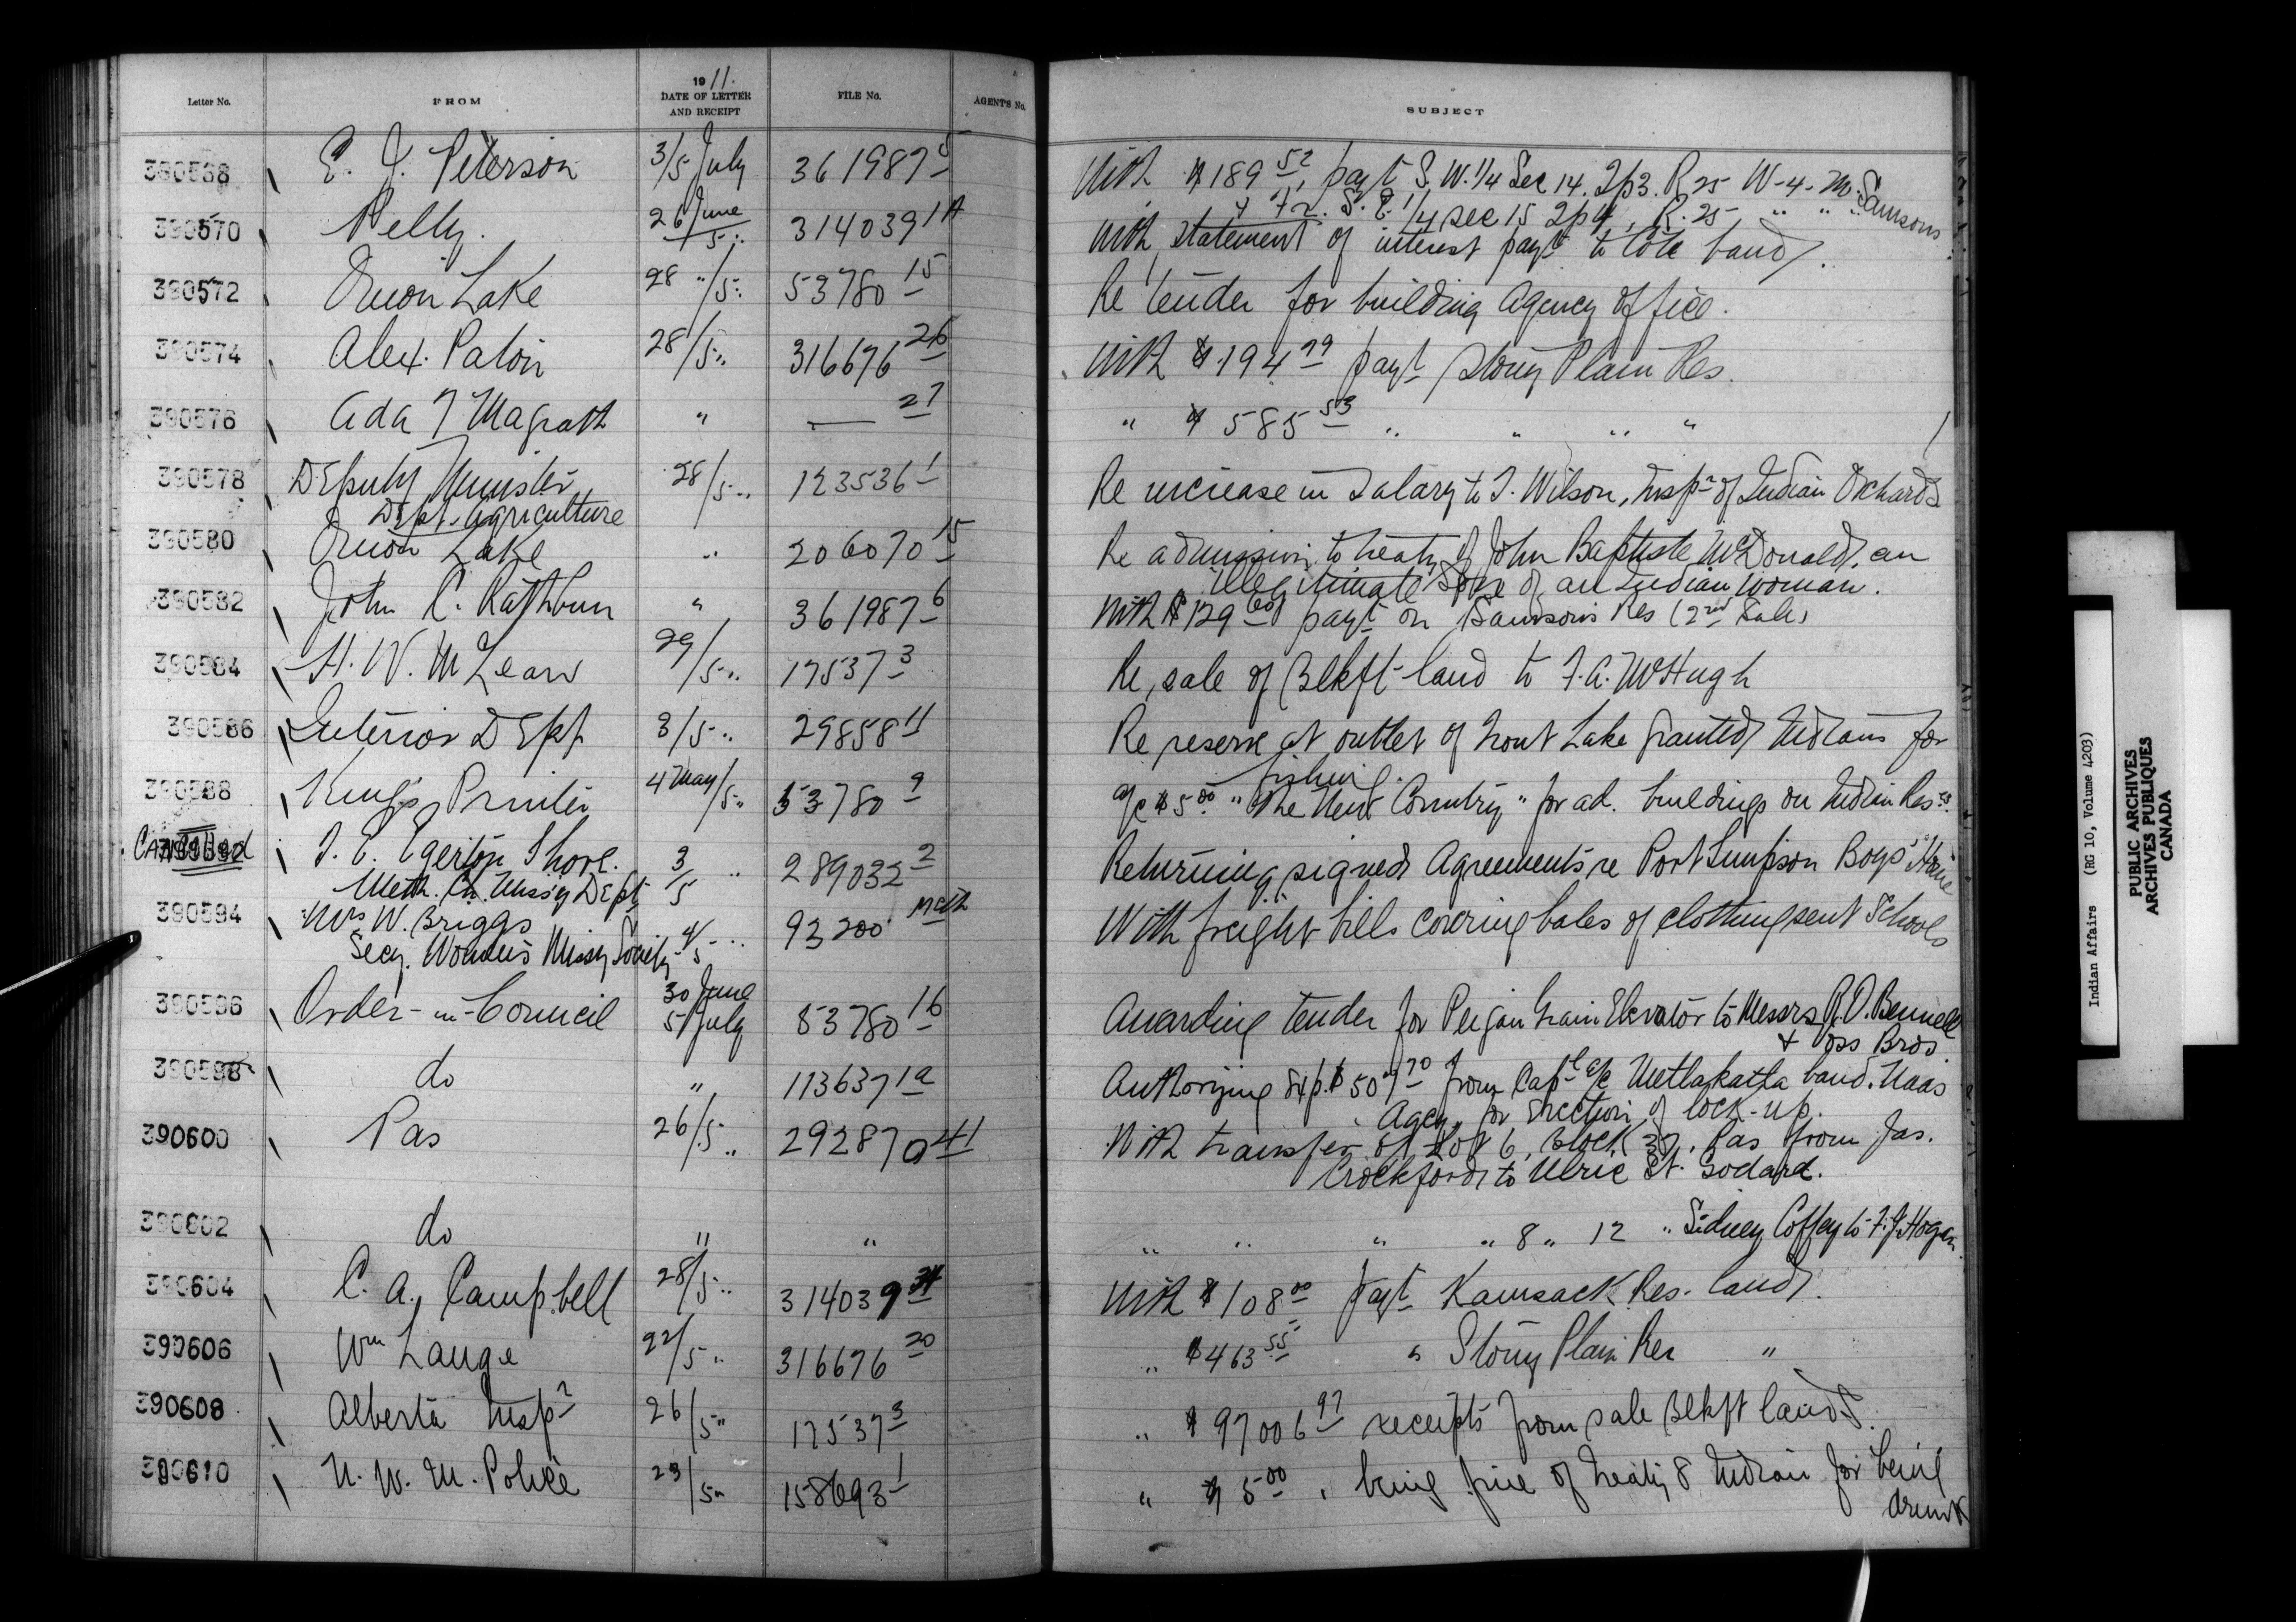 Letter No. FROM 1911. DATE OF LETTER AND RECEIPT FILE No. AGENT'S No. SUBJECT
390568 E. J. Peterson 3/5 July 361987 5 With $189 52, payt S.W. 1/4 Sec 14. Tp 3. R 25 W-4-M. Samsons
+ Fr. S.E. 1/4 sec 15 Tp 4, R. 25 " " "
390570 Pelly. 26 June/5 " 314039 1A With statement of interest payt to Cote band.
390572 Onion Lake 28 "/5 " 53780 15 Re tender for building Agency office.
390574 Alex. Paton 28/5 " 316676 26 With $194 99 payt Stony Plain Res.
390576 Ada Magrath " — 27 " $585 53 " " " "
390578 Deputy Minister 28/5 " 123536 1 Re increase in salary to T. Wilson, Inspr of Indian Orchards
Dept. Agriculture
390580 Onion Lake " 206070 15 Re admission to treaty of John Baptiste McDonald, an
illegitimate son of an Indian woman.
390582 John C. Rathbun " 361987 6 With $129 60 payt on Samson's Res (2nd Sale)
390584 H. W. McLean 29/5 " 17537 3 Re, sale of Blkft land to F. A. McHugh
390586 Interior Dept. 3/5 " 29858 11 Re reserve at outlet of Trout Lake granted Indians for
fishing.
390588 King's Printer 4 May/5 " 53780 9 a/c $5 00 "The New Country" for ad. buildings on Indian Res es
Cancelled 390592 T. E. Egerton Shore. 3/5 " 289032 2 Returning signed Agreements re Port Simpson Boys' Home
Meth. Ch. Miss'y Dept
390594 Mrs W. Briggs 4/5 " 93200 Meth With freight bills covering bales of clothing sent Schools
Secy. Women's Missy Society
390596 Order-in-Council 30 June 5/July 53780 16 Awarding tender for Peigan Grain Elevator to Messrs R. O. Bennell
+ Oss Bros.
390598 do " 113637 1a Authorizing exp. $507 70 from Capl a/c Metlakatla band. Naas
Agcy, for erection of lock-up.
390600 Pas 26/5 " 292870 41 With transfer of Lot 6, Block 37, Pas from Jas.
Crockford to Ulric St. Godard.
390602 do " " " " " " 8 " 12 " Sidney Coffey to F. J. Hogan.
390604 C. A. Campbell 28/5 " 314039 With $108 00 payt Kamsack Res. land.
390606 Wm Lange 22/5 " 316676 20 " $463 55 " Stony Plain Res "
390608 Alberta Inspr 26/5 " 17537 3 " $97006 97 receipts from sale Blkft lands.
390610 N. W. M. Police 23/5 " 158693 1 " $5 00, being fine of Treaty 8 Indian for being
drunk
Indian Affairs (RG 10, Volume 4203)
PUBLIC ARCHIVES
ARCHIVES PUBLIQUES
CANADA